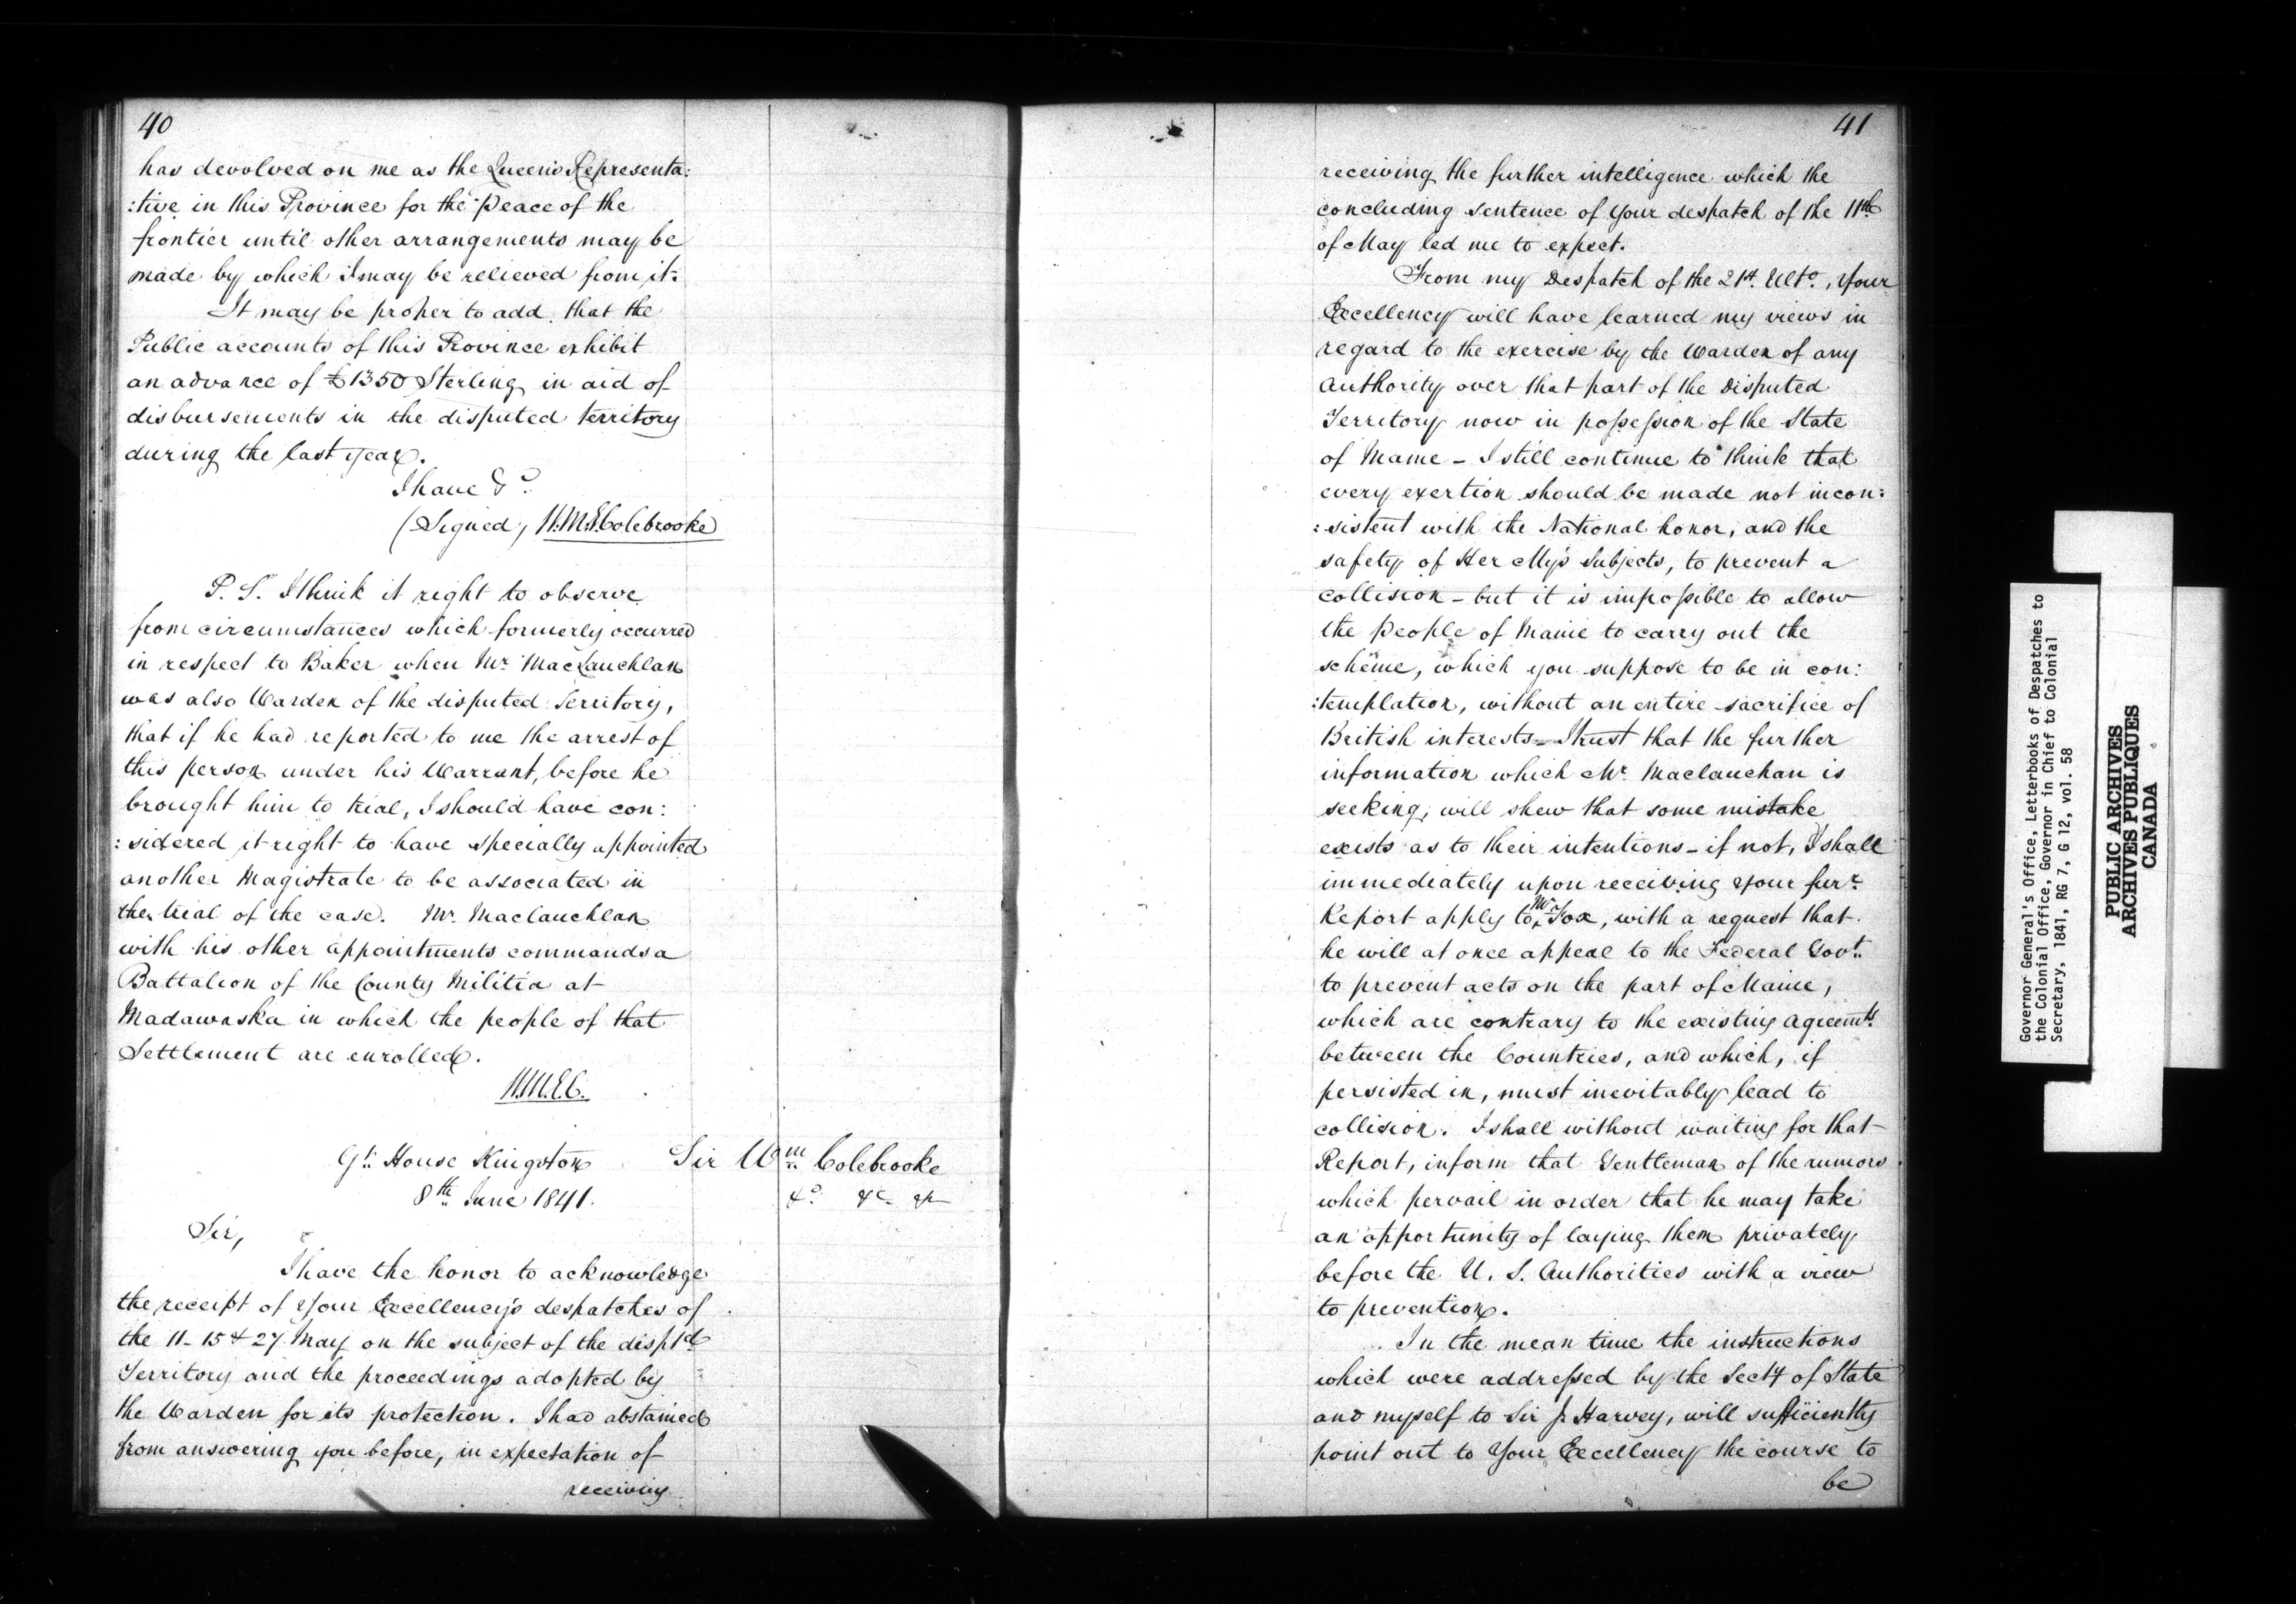 40
has devolved on me as the Queen's Representa:
:tive in this Province for the Peace of the
frontier until other arrangements may be
made by which I may be relieved from it.
It may be proper to add that the
Public accounts of this Province exhibit
an advance of £1350 Sterling in aid of
disbursements in the disputed territory
during the last year.
I have &c.
(Signed) W.M.G. Colebrooke
P.S. I think it right to observe
from circumstances which formerly occurred
in respect to Baker when Mr. MacLauchlan
was also Warden of the disputed Territory,
that if he had reported to me the arrest of
this person under his Warrant, before he
brought him to trial, I should have con:
:sidered it right to have specially appointed
another Magistrate to be associated in
the trial of the case. Mr. Maclauchlan
with his other appointments commands a
Battalion of the County Militia at
Madawaska in which the people of that
Settlement are enrolled.
W.M.G.C.
Gt. House Kingston
8th June 1841.
Sir Wm Colebrooke
&c. &c &c
Sir,
I have the honor to acknowledge
the receipt of Your Excellency's despatches of
the 11-15 & 27 May on the subject of the disptd
Territory and the proceedings adopted by
the Warden for its protection. I had abstained
from answering you before, in expectation of
receiving
41
receiving the further intelligence which the
concluding sentence of your despatch of the 11th
of May led me to expect.
From my Despatch of the 21st. Ulto., Your
Excellency will have learned my views in
regard to the exercise by the Warden of any
Authority over that part of the Disputed
Territory now in possession of the State
of Maine – I still continue to think that
every exertion should be made not incon:
:sistent with the National honor, and the
safety of Her My's Subjects, to prevent a
collision – but it is impossible to allow
the People of Maine to carry out the
scheme, which you suppose to be in con:
:templation, without an entire sacrifice of
British interests – I trust that the further
information which Mr. Maclauchan is
seeking, will shew that some mistake
exists as to their intentions – if not, I shall
immediately upon receiving your furr.
Report apply to Mr Fox, with a request that
he will at once appeal to the Federal Govt.
to prevent acts on the part of Maine,
which are contrary to the existing agreemts.
between the Countries, and which, if
persisted in, must inevitably lead to
collision. I shall without waiting for that
Report, inform that Gentleman of the rumors
which pervail in order that he may take
an opportunity of laying them privately
before the U.S. Authorities with a view
to prevention.
In the mean time the instructions
which were addressed by the Secty of State
and myself to Sir J. Harvey, will sufficiently
point out to Your Excellency the course to
be
Governor General's Office, Letterbooks of Despatches to
the Colonial Office, Governor in Chief to Colonial
Secretary, 1841, RG 7, G 12, vol. 58
PUBLIC ARCHIVES
ARCHIVES PUBLIQUES
CANADA